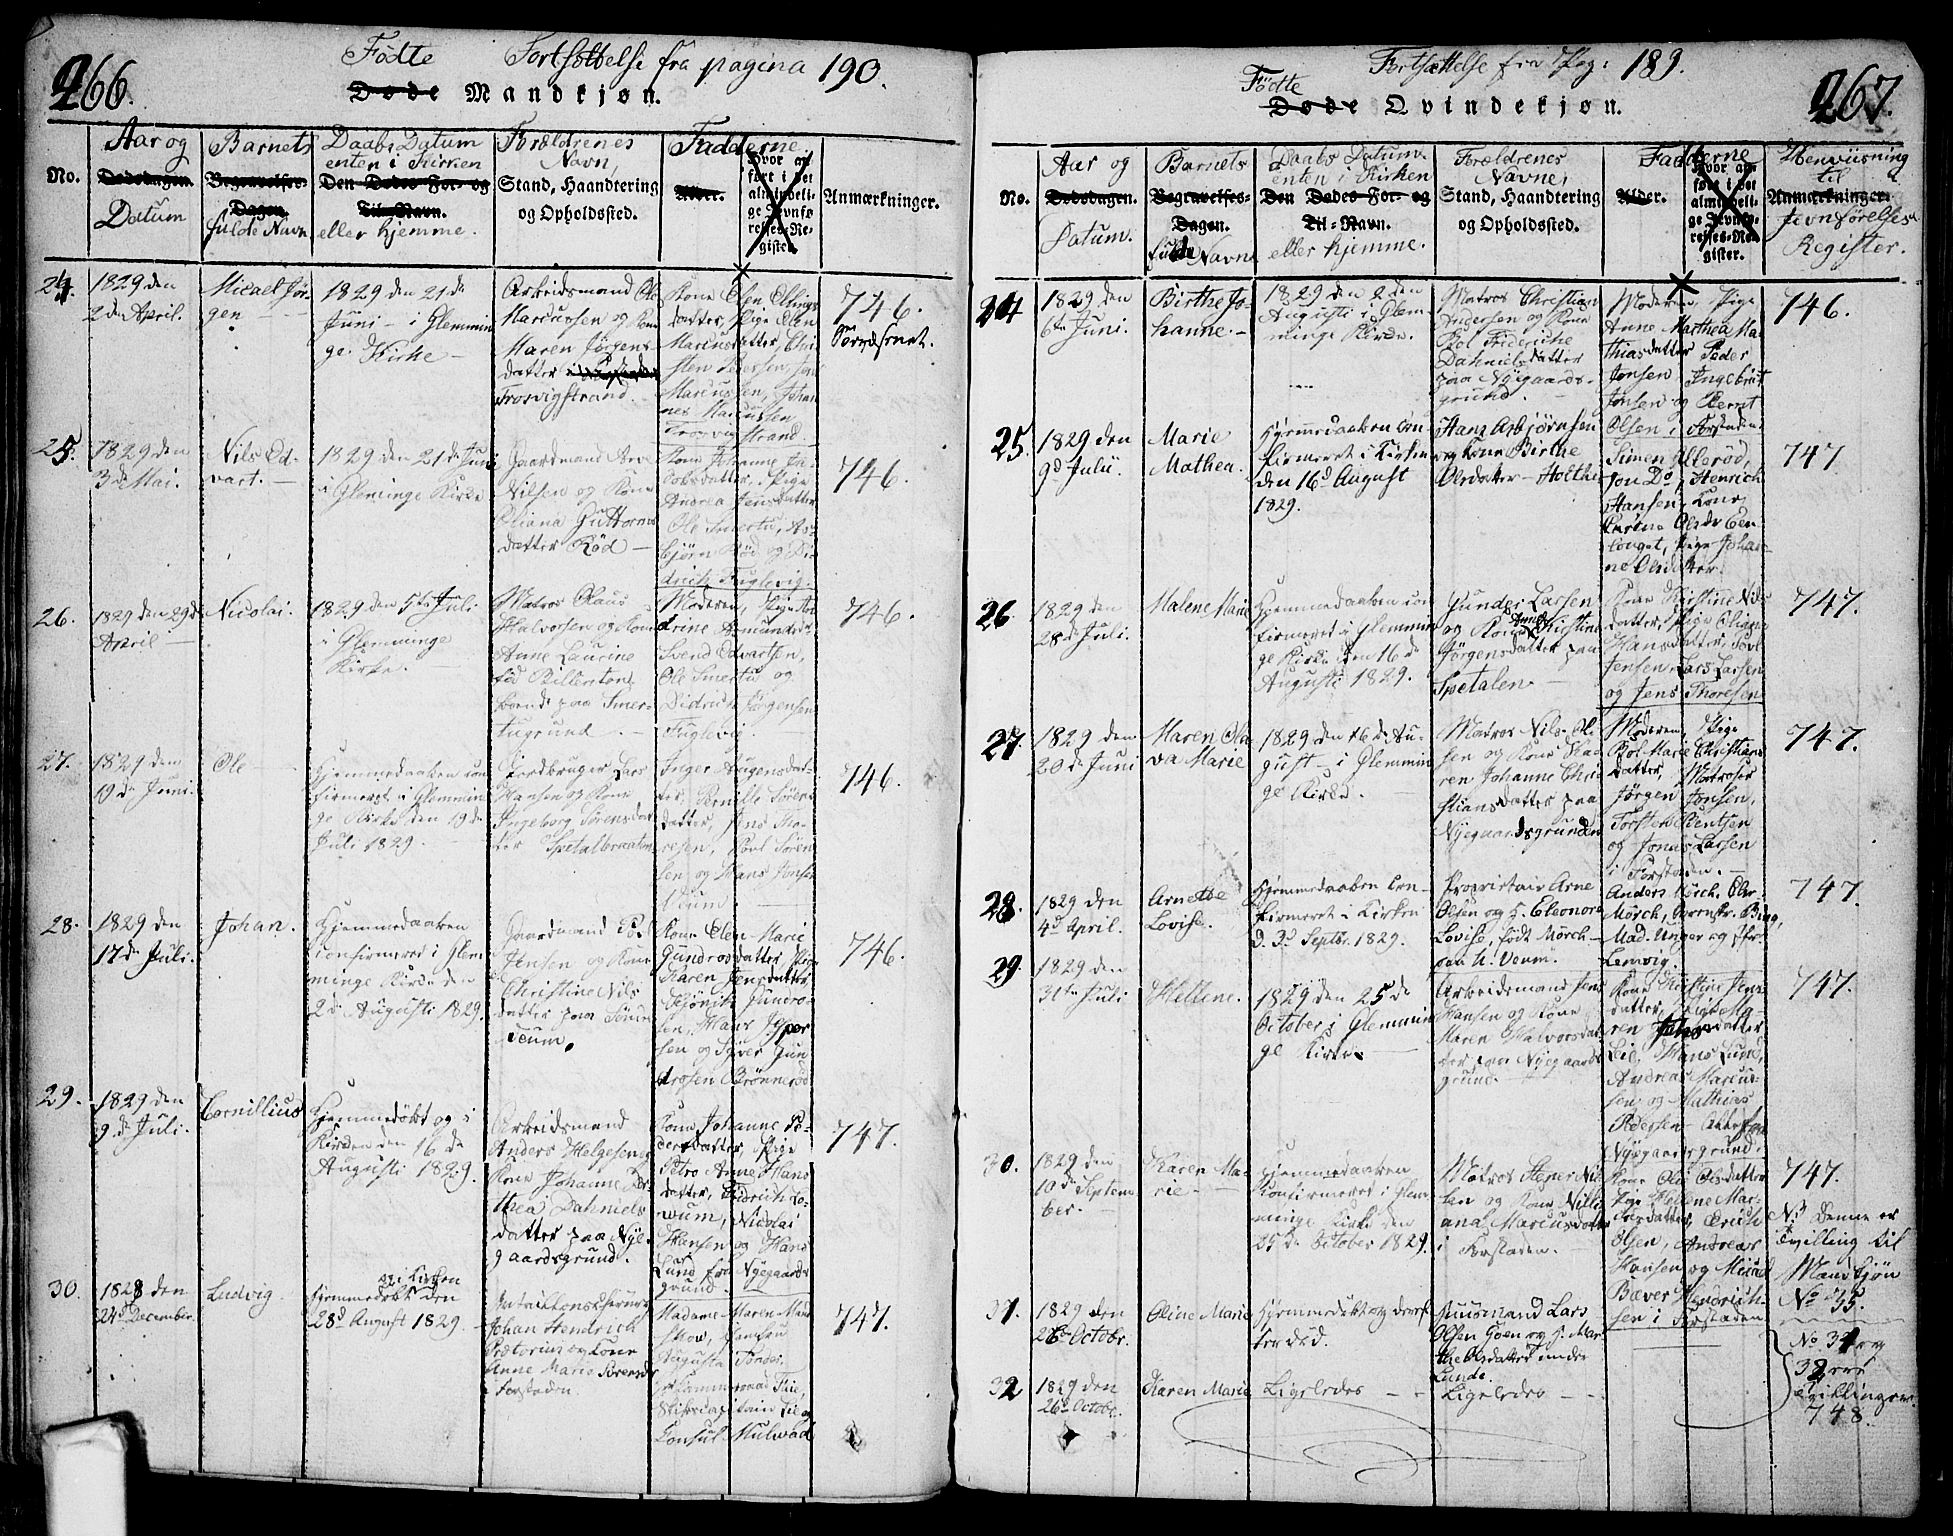 266.
Fødte Fortsættelse fra pagina 190.
Døde Mandkjøn.
No.
Aar og
Dødsdagen.
Datum
Barnets
Begravelses-
Dagen.
fulde Navn
Daabs Datum
enten i Kirken
Den Dødes For- og
Til-Navn.
eller hjemme.
Forældrenes
Navn,
Stand, Haandtering
og Opholdssted.
Fadderne
Alder.
Hvor an-
ført i det
almindeli-
ge Jevnfø-
relses-Re-
gister.
Anmærkninger.
24.
1829 den
2den April.
Micael Jør-
gen
1829 den 21de
Juni - i Glemmin
ge Kirke
Arbeidsmand Ole
Marcussen og Kone
Maren Jørgens-
datter
Trosvigstrand.
Kone Elen Ellings
datter, Pige Elen
Marcusdatter, Chri
sten Petersen, Jens
Marcussen, Johan
nes Marcussen
Trosvigstrand.
746.
25.
1829 den
3de Mai.
Nils Ed-
vart.
1829 den 21de Juni
i Gleminge Kirke
Gaardmand Are
Nilsen og Kone
Eliana Guttorms
datter Rød
Kone Johanne Ja-
cobsdatter, Pige
Andrea Jensdatter
Ole Smertu, As-
bjørn Rød og Di-
drich Fuglevig.
746.
26.
1829 den 29de
April
Nicolai.
1829 den 5te Juli
i Glemminge
Kirke.
Matros Claus
Halvorsen og Kone
Anne Laurine
fød Killerton,
boende paa Smer-
tugrund.
Moderen, Pige An
drine Amundsdtr
Svend Edvartsen,
Ole Smertu og
Didrich Jørgensen
Fuglevig.
746.
27.
1829 den
19de Juni.
Ole
Hjemmedøbt con
firmeret i Glemmin
ge Kirke den 19de
Juli 1829.
Jordbruger Lars
Hansen og Kone
Ingeborg Sørensdat
ter Spetalbraaten
Inger Haagensdat-
ter, Pernille Søren
datter, Jens Tho-
resen, Povl Søren
sen og Hans Jonsen
Veum
746.
28.
1829 den
17de Juli.
Johan.
Hjemmedøbt
confirmeret i Glem
minge Kirke den
2de Augusti 1829.
Gaardmand
Jensen og Kone
Christine Nils
datter paa Søndre
Veum.
Kone Elen Marie
Gundrosdatter, Pige
Karen Jensdatter,
Gundro-
sen, Hans Jesper
sen og Syver Gun
drosen Brønnerød
746.
29.
1829 den
9de Juli.
Cornillius
Hjemmedøbt og i
Kirken den 16de
Augusti 1829.
Arbeidsmand
Anders Helgesen og
Kone Johanne Dor-
thea Dahniels
datter paa Nye-
gaardsgrund.
Kone Johanne Pe-
dersdatter, Pige
Petro Anne Hans
datter, Fridrich Lo-
wum, Nicolai
Hansen og Hans
Lund fra Nyegaards
grund.
747.
30.
1828 den
24de December.
Ludvig.
og i Kirken
Hjemmedøbt den
28de August 1829
Johan Hendrich
Prætorius og Kone
Anne Marie Sørensdr
i Forstaden
Madame Maren Marie
Augusta
Consul Mulwad
747.
267.
Fortsættelse fra Pag: 189.
Fødte
Døde Qvindekjøn.
No.
Aar og
Dødsdagen.
Datum.
Barnets
Begravelses-
Dagen.
fulde Navn
Daabs Datum
enten i Kirken
Den Dødes For- og
Til-Navn.
eller hjemme.
Forældrenes
Navne,
Stand, Haandtering
og Opholdssted.
Fadderne
Alder.
Hvor an-
ført i det
almindeli-
ge Jevnfø-
relses-Re-
gister.
Henviisning
til
Anmærkninger.
Jevnførelses
Register.
24
1829 den
6te Juni.
Birthe Jo-
hanne.
1829 den 2den
Augusti i Glem-
minge Kirke.
Matros Christian
Andersen og Kone
Bol Fideriche
Dahnielsdatter
paa Nygaards-
grund.
Moderen, Pige
Anne Marthea Ma
thiasdatter Peder
Jonsen, Ingebrit
Jonsen og Bernt
Olsen i Forstaden
746.
25.
1829 den
9d Julii.
Marie
Mathea.
Hjemmedøbt con
firmeret i Kirken
den 16d August
1829.
Hans Asbjørnsen
og Kone Birthe
Olsdatter - Holthe
Simen Ullerød,
Jon Do, Henrich
Hansen, Kone
Olsdr
Pige Johan-
ne Olsdatter.
747
26
1829 den
28de Juli.
Malene Marie
Hjemmedøbt con
firmeret i Glemmin
ge Kirke den 16de
Augusti 1829.
Gunder Larsen
og Kone Anne Kristine
Jørgensdatter paa
Spetalen
Kone Kristine Nils
datter, Pige Oliane
Hansdatter, Povl
Jensen, Lars Larsen
og Jens Thoresen
747.
27.
1829 den
20de Juni
Maren Ola
va Marie
1829 den 16de Au-
gust - i Glemmin
ge Kirke.
Matros Nils Ol-
sen og Kone Ka-
ren Johanne Chri
stiansdatter paa
Nyegaardsgrunden
Moderen, Pige
Bol Marie Christians
datter, Matroser
Jørgen Jonsen,
Torsten Bentsen
og Jonas Larsen
i Forstaden.
747.
28.
1829 den
4d April.
Arnette
Lovise.
Hjemmedøbt con-
firmeret i Kirken
d. 3d Septbr. 1829.
Proprietair Arne
Olsen og H. Eleonora
Lovise, født Mørch -
paa N. Veum.
Anders Mørch, Ole
Mørch, Bing,
Mad. Unger og Jfr.
Lemvig.
747.
29.
1829 den
31te Juli.
Hellene.
1829 den 25de
October i Glemmin
ge Kirke.
Arbeidsmand Jens
Hansen og Kone
Maren Halvorsdat
ter paa Nyegaards
grund.
Kone Kirstine Jens
datter, Pige Ma-
ren
Lie, Hans Lund,
Andreas Marcus-
sen og Mathias
Pedersen
Nyegaardsgrund.
747.
30.
1829 den
10de Septem
ber.
Karen Ma-
rie
Hjemmedøbt
Konfirmeret i Glem
minge Kirke den
25de October 1829.
Matros Stener Nil-
sen og Kone Nilli-
ana Marcusdatter
i Forstaden.
Kone Ole Olsdatter
Pige Hellene Mar-
Erich
Olsen, Andreas
Hansen og Micael
Bæver Hendrich-
sen i Forstaden
747.
N.B. Denne er
Tvilling til
Mandkjøn
No 35.
31.
1829 den
26d Octobr.
Oline Marie
Hjemmedøbt og deref-
ter død.
Huusmand Lars
Olsen Goen og H. Mar
the Olsdatter under
Lunde.
No 31 og
32 ere
Tvillinger
748.
32
1829 den
26d Octobr.
Karen Marie
Ligeledes
Ligeledes